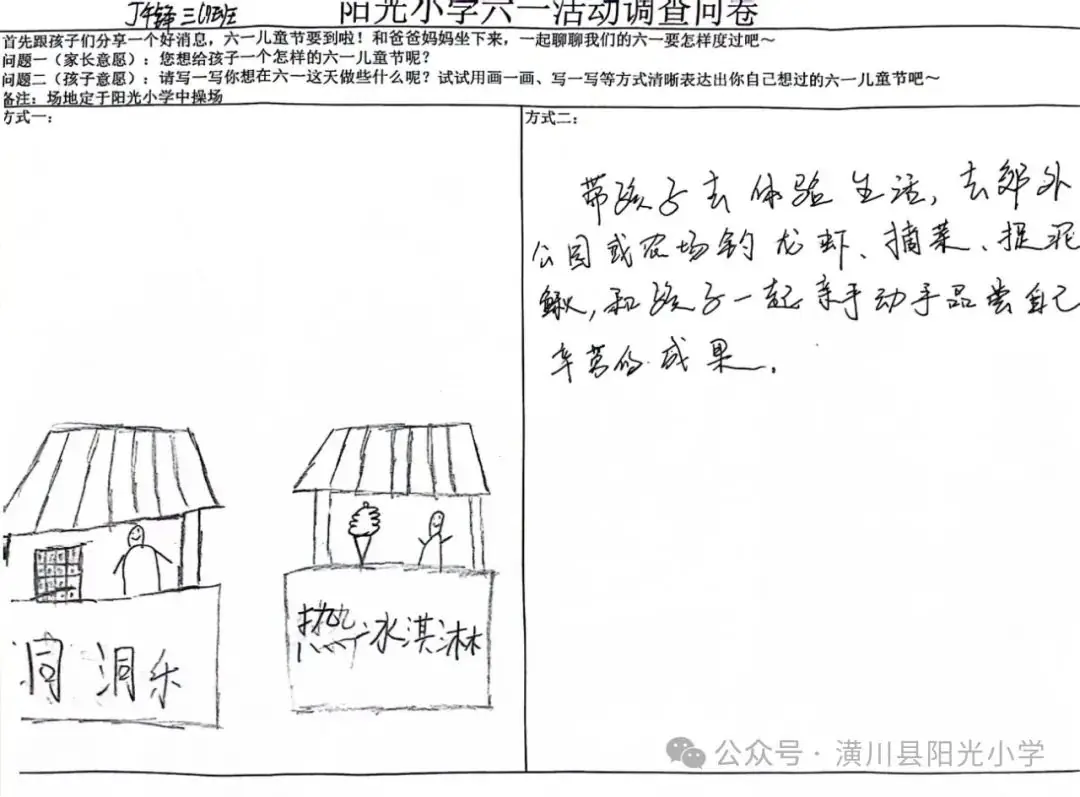 三 班
阳光小学六一活动调查问卷
首先跟孩子们分享一个好消息，六一儿童节要到啦！和爸爸妈妈坐下来，一起聊聊我们的六一要怎样度过吧～
问题一（家长意愿）：您想给孩子一个怎样的六一儿童节呢？
问题二（孩子意愿）：请写一写你想在六一这天做些什么呢？试试用画一画、写一写等方式清晰表达出你自己想过的六一儿童节吧～
备注：场地定于阳光小学中操场
方式一：
洞洞乐
热冰淇淋
方式二：
带孩子去体验生活，去郊外
公园或农场钓龙虾、摘菜、捉泥
鳅，和孩子一起亲手动手品尝自己
辛苦的成果。
公众号·潢川县阳光小学